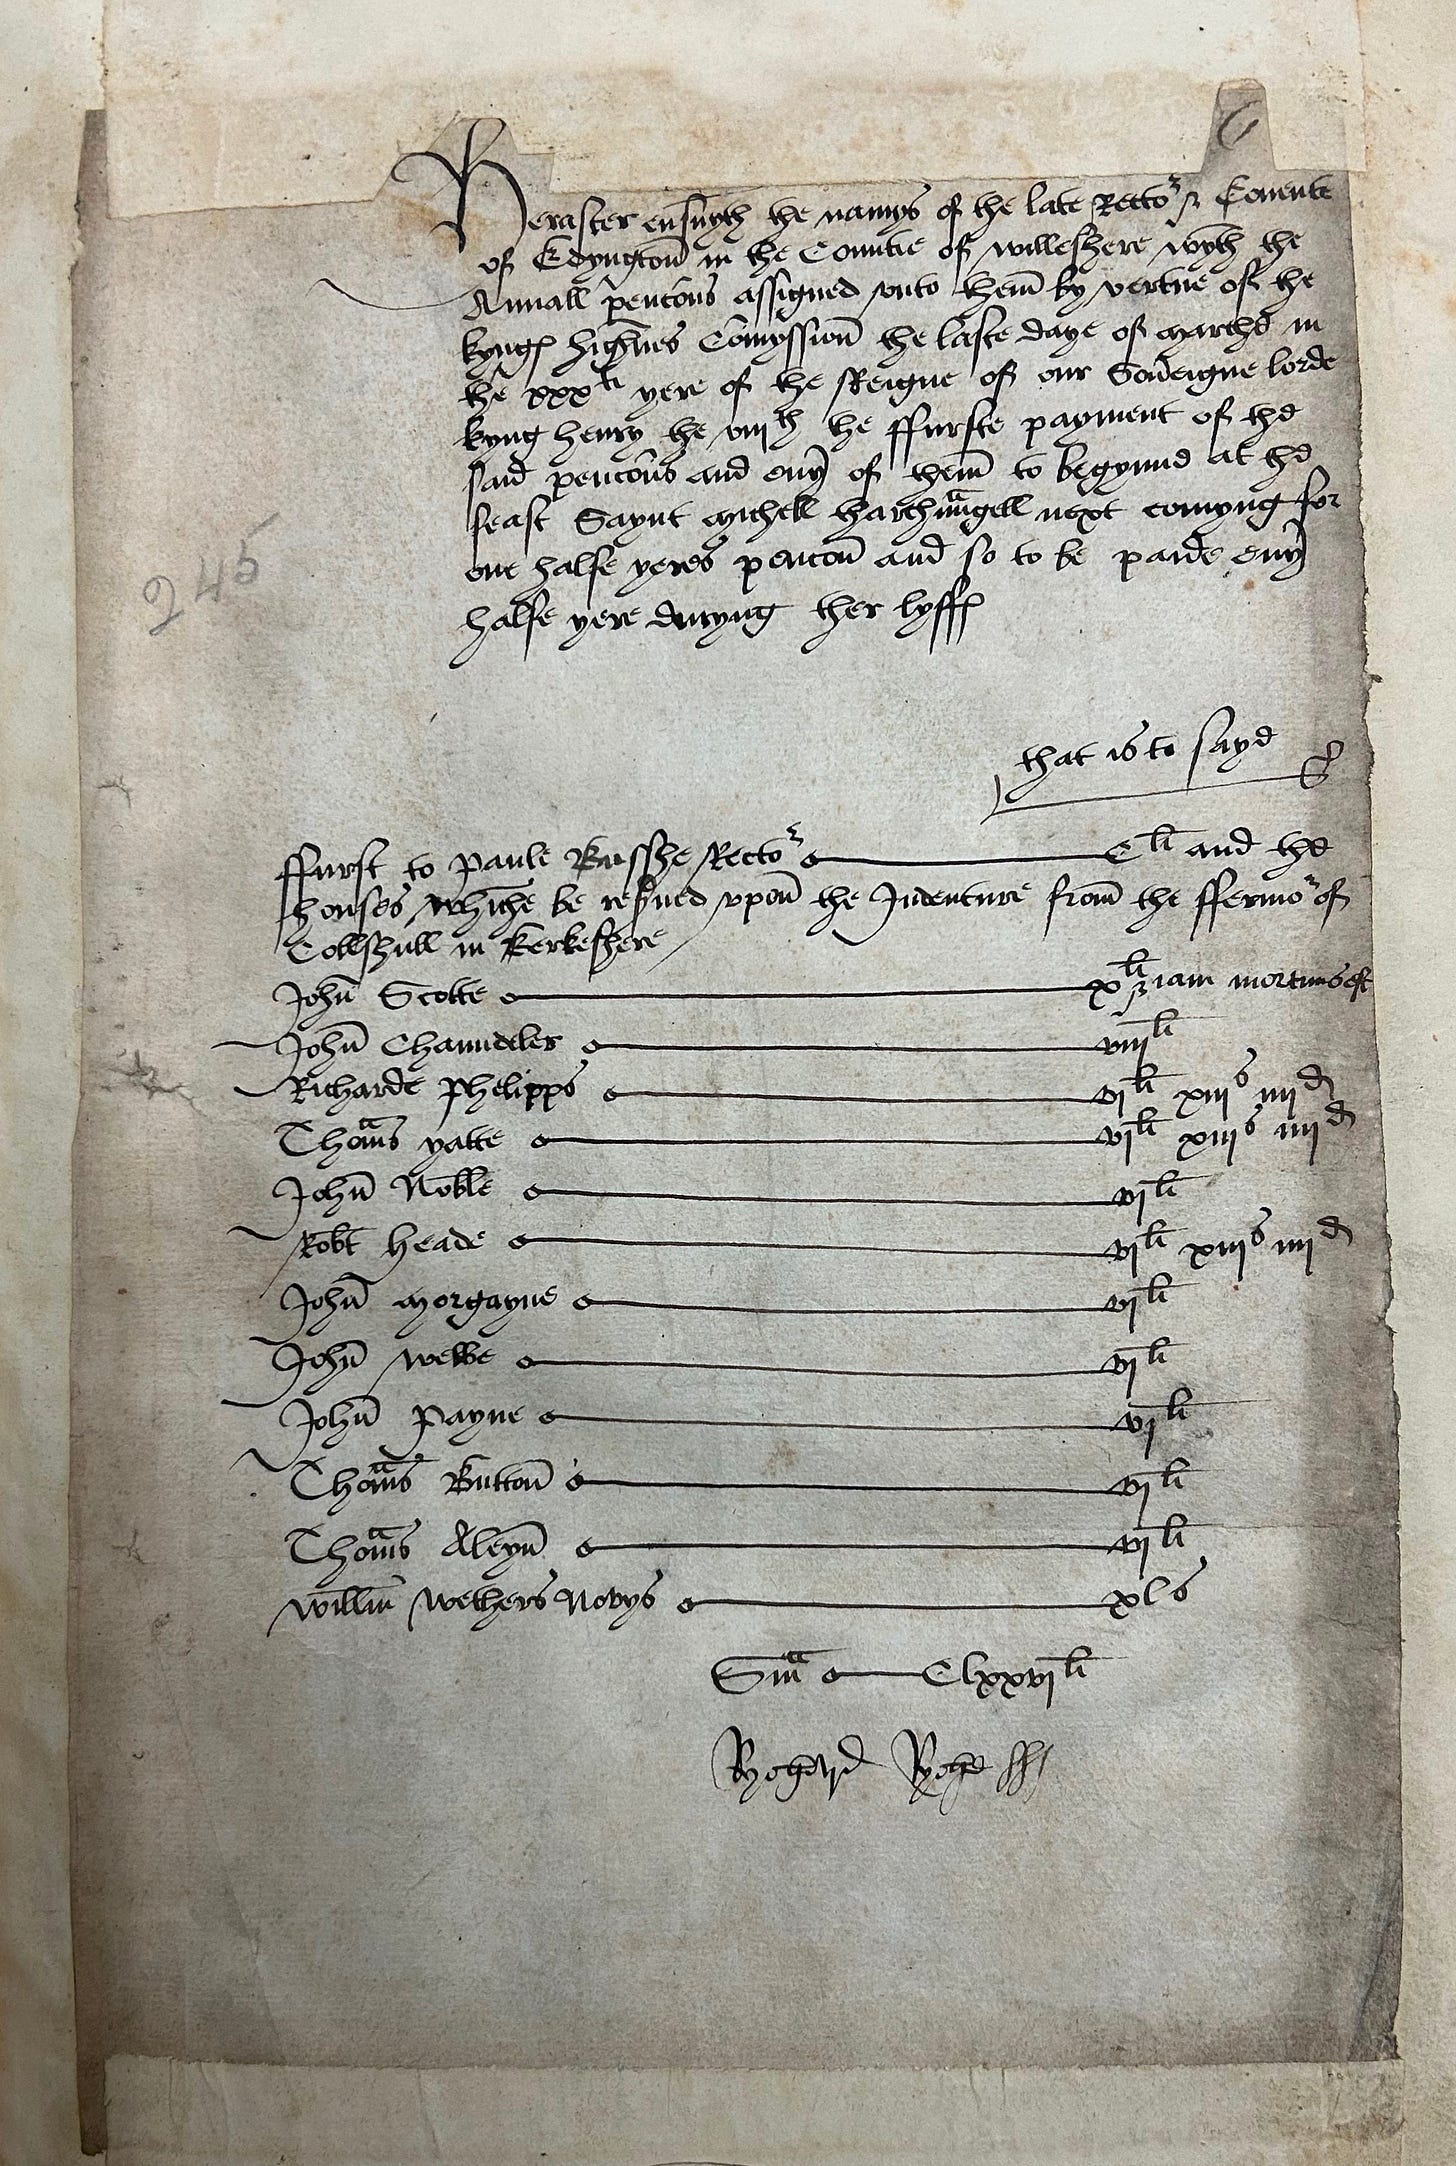 Herafter ensuyth the namys of the late Rector & Covente
of Edyngton in the Countie of willeshere wyth the
Annuall pencons assigned vnto them by vertue of the
kyngs highnes Comyssion the laste daye of Marche in
the xxxti yere of the Reigne of our Soveigne lorde
kyng henry the viiith the ffurste payment of the
said pencons and evy of them to begynne at the
feast Saynt Michell tharchangell next comyng for
one halfe yeres pencon and so to be paide evy
halfe yere duryng ther lyffs
245
that is to saye
ffurst to Paule Busshe Rector Cli and the
houses whiche be resved vpon the Indenture from the ffermor of
Collshull in Berkeshere
John Scotte xli & iam mortuus est
John Chaundeler viiili
Richarde Phelipps vili xiiis iiiid
Thomas yatte vili xiiis iiiid
John Noble vili
Robt Heade vili xiiis iiiid
John Morgayne vili
John Webbe vili
John Payne vili
Thomas Button vili
Thomas Aleyn vili
Willm Wethers Novys xls
Sma Clxxvili
Rychard Ryche